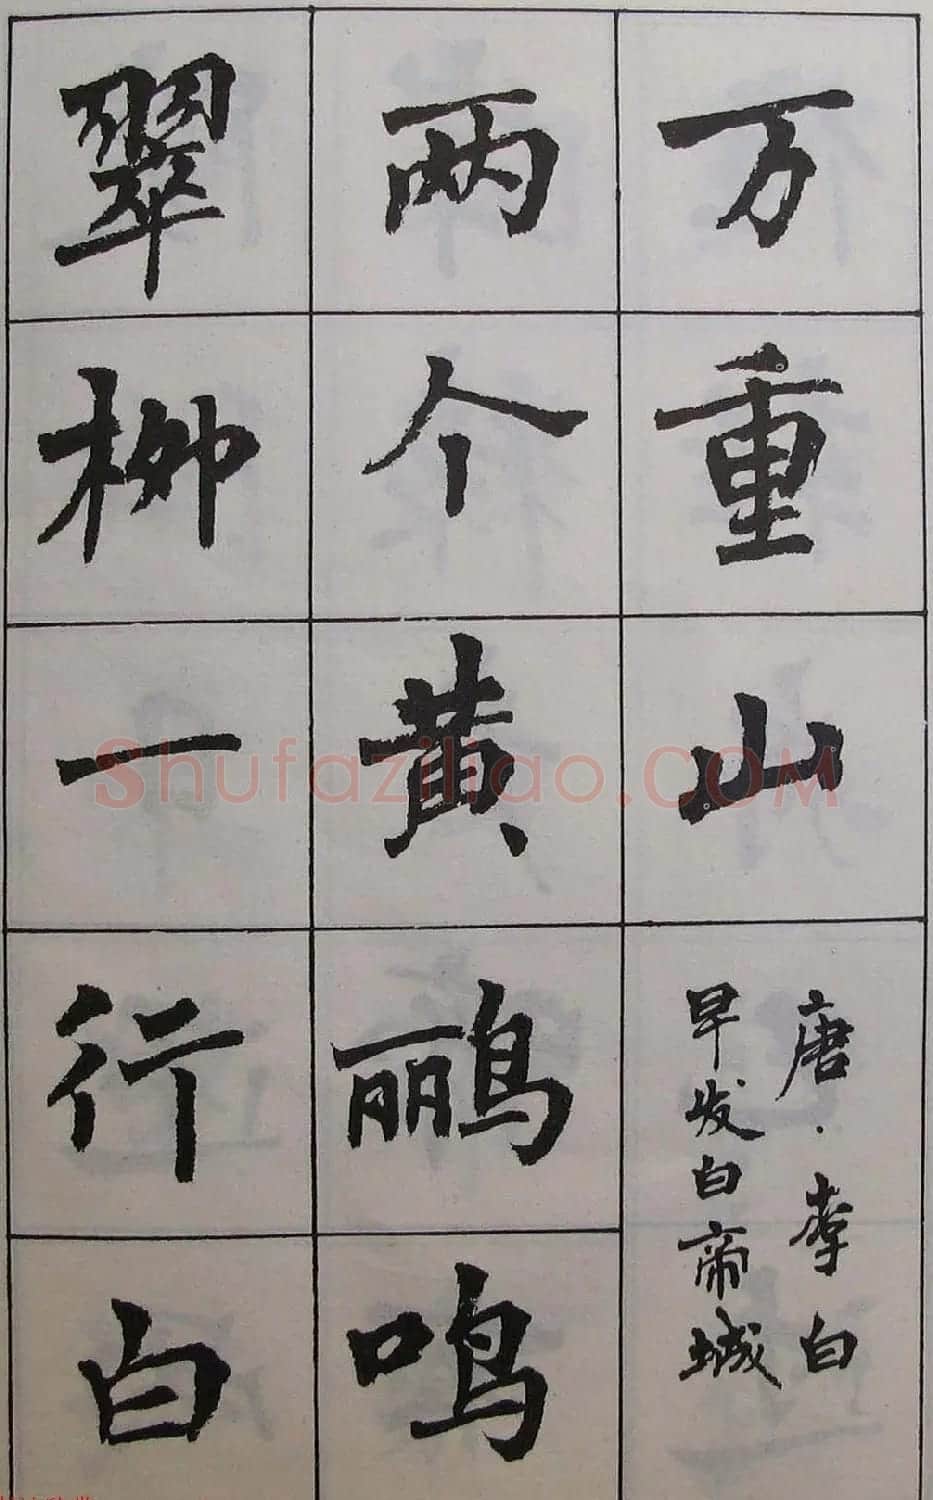 万重山
唐·李白
早发白帝城
两个黄鹂鸣
翠柳一行白
Shufaziliao.COM